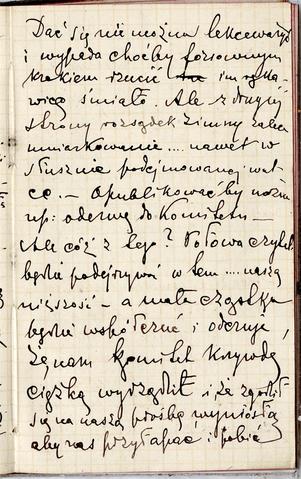 Dać się nie można lekceważyć
i wypada choćby forsownym
krokiem rzucić im rękawicę
śmiało. Ale z drugiej
strony rozsądek zimny zaleca
umiarkowanie .... nawet w
słusznie podejmowanej walce. –
Opublikować by można
np: odezwę do Komitetu –
Ale cóż z tego? Połowa czytel.
będzie podejrzywać w tem .... naszą
niższość – a mała cząstka
będzie współczuć i odczuje,
że nam Komitet krzywdę
ciężką wyrządził i że zgodził
się na naszą prośbę wyniosłą
aby nas przyłapać i pobić